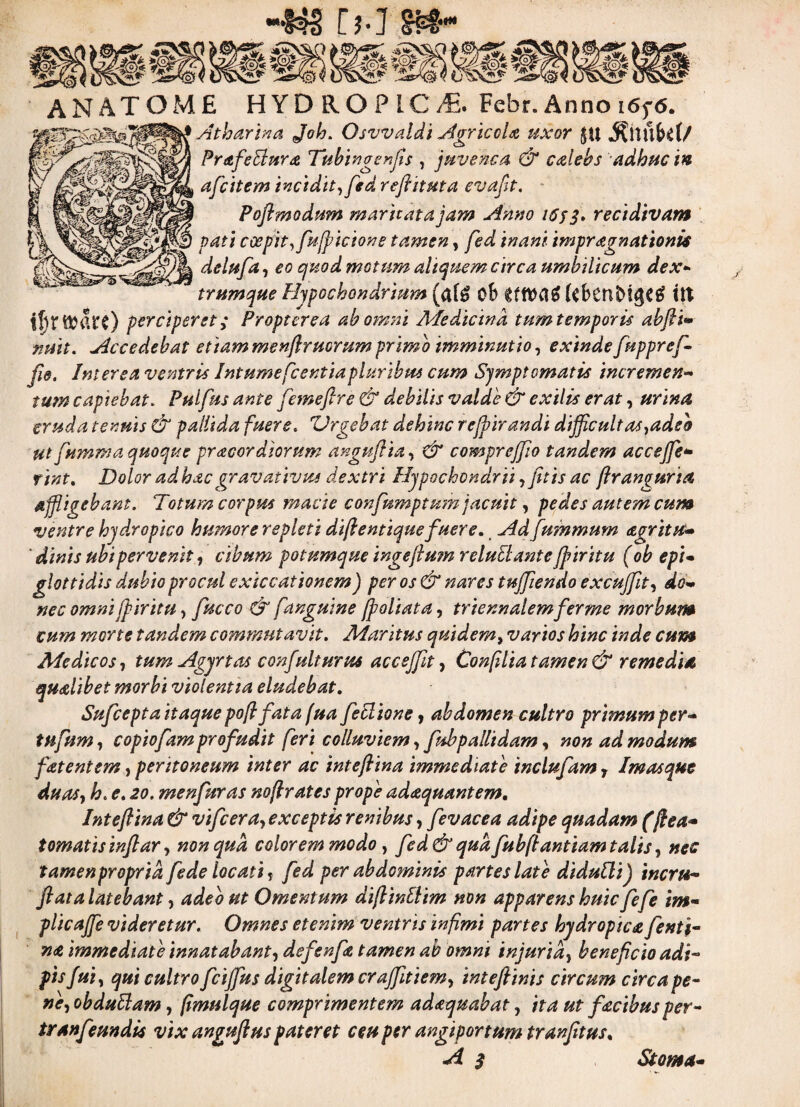 [3.]
ANATOME HYDROPICÆ. Febr. Anno 1656.
CAtharina Joh. Osvvaldi Agricolæ uxor zu Knübel/
Præfecturæ Tubingensis, juvenca & cælebs adhuc in
ascitem incidit, sed restituta evasit.
Postmodum maritata jam Anno 1653. recidivam
pati cœpit, suspicione tamen, sed inani imprægnationis
delusa, eo quod motum aliquem circa umbilicum dex-
trumque Hypochondrium (als ob etwas lebendiges in
ihr wäre) perciperet; Propterea ab omni Medicinâ tum temporis absti-
nuit. Accedebat etiam menstruorum primò imminutio, exinde suppres-
sio. Interea ventris Intumescentia pluribus cum Symptomatis incremen-
tum capiebat. Pulsus ante semestre & debilis valdè & exilis erat, urina
cruda tenuis & pallida fuere. Urgebat dehinc respirandi difficultas, adeò
ut summa quoque præcordiorum angustia, & compressio tandem accesse-
rint. Dolor ad hæc gravativus dextri Hypochondrii, sitis ac stranguria
affligebant. Totum corpus macie consumptum jacuit, pedes autem cum
ventre hydropico humore repleti distentique fuere. Ad summum ægritu-
dinis ubi pervenit, cibum potumque ingestum reluctante spiritu (ob epi-
glottidis dubio procul exiccationem) per os & nares tussiendo excussit, do-
nec omni spiritu, succo & sanguine spoliata, triennalem ferme morbum
cum morte tandem commutavit. Maritus quidem, varios hinc inde cum
Medicos, tum Agyrtas consulturus accessit, Consilia tamen & remedia
quælibet morbi violentia eludebat.
Suscepta itaque post fata sua sectione, abdomen cultro primum per-
tusum, copiosam profudit seri colluviem, subpallidam, non ad modum
fætentem, peritoneum inter ac intestina immediatè inclusam, Imasque
duas, h. e. 20. mensuras nostrates propè adæquantem.
Intestina & viscera, exceptis renibus, sevacea adipe quadam (stea-
tomatis instar, non quâ colorem modo, sed & quâ substantiam talis, nec
tamen propriâ sede locati, sed per abdominis partes latè diducti) incru-
stata latebant, adeò ut Omentum distinctim non apparens huic sese im-
plicasse videretur. Omnes etenim ventris infimi partes hydropicæ senti-
næ immediatè innatabant, defensæ tamen ab omni injuriâ, beneficio adi-
pis sui, qui cultro scissus digitalem crassitiem, intestinis circum circa pe-
nè, obductam, simulque comprimentem adæquabat, ita ut fæcibus per-
transeundis vix angustus pateret ceu per angiportum transitus.
A 3 Stoma-